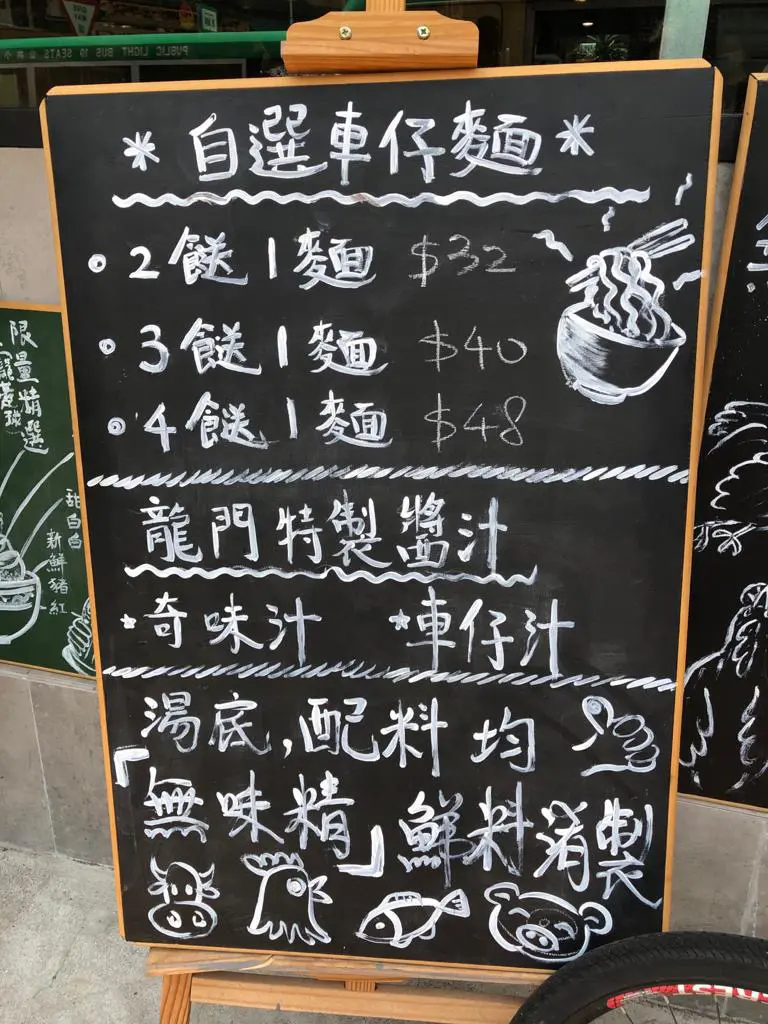 PUBLIC LIGHT BUS 19 SEATS
* 自選車仔麵 *
2餸1麵 $32
3餸1麵 $40
4餸1麵 $48
龍門特製醬汁
*奇味汁 *車仔汁
湯底,配料均
「無味精」鮮料淆製
限量精選
甜白白
新鮮豬紅